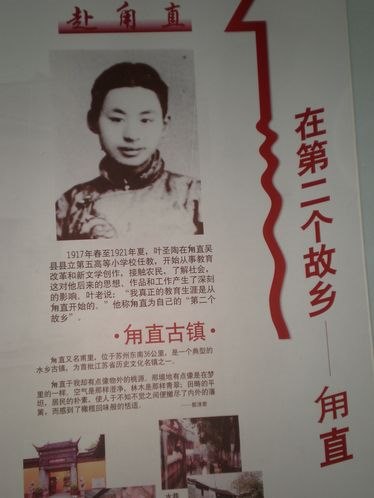 赴甪直
1917年春至1921年夏，叶圣陶在甪直吴
县县立第五高等小学校任教，开始从事教育
改革和新文学创作，接触农民，了解社会，
这对他后来的思想、作品和工作产生了深刻
的影响。叶老说：“我真正的教育生涯是从
甪直开始的。”他称甪直为自己的“第二个
故乡”。
·甪直古镇·
甪直又名甫里，位于苏州东南36公里，是一个典型的
水乡古镇，为首批江苏省历史文化名镇之一。
甪直于我却有点像物外的桃源。那境地有点像是在梦
里的一样。空气是那样澄净，林木是那样青翠；田畴的平
坦，居民的朴素，使人于不知不觉之间便撤尽了内外的藩
篱，而感到了橄榄回味般的恬适。
在第二个故乡——甪直